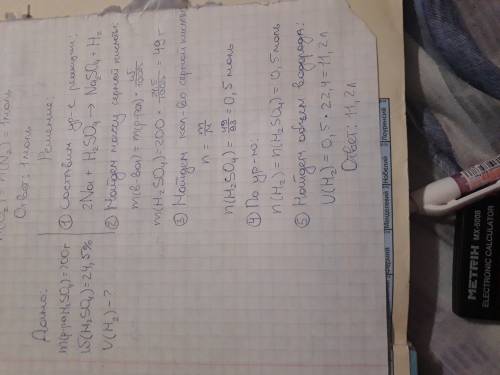 Ответ: 1моль
Дано:
m(р-ра H₂SO₄)=200г
W(H₂SO₄)=24,5%
V(H₂)-?
Решение:
① Составим ур-е реакции:
2Na + H₂SO₄ → Na₂SO₄ + H₂
② Найдем массу серной кислоты:
m(в-ва)=m(р-ра)·W/100%
m(H₂SO₄)=200·24,5/100%=49г
③ Найдем кол-во серной кислоты
n = m/M
n(H₂SO₄)=49/98=0,5 моль
④ По ур-ю:
n(H₂)=n(H₂SO₄)=0,5 моль
⑤ Найдем объем водорода:
V(H₂)=0,5·22,4=11,2л
Ответ: 11,2л
METRIX MX-500B
ELECTRONIC CALCULATOR